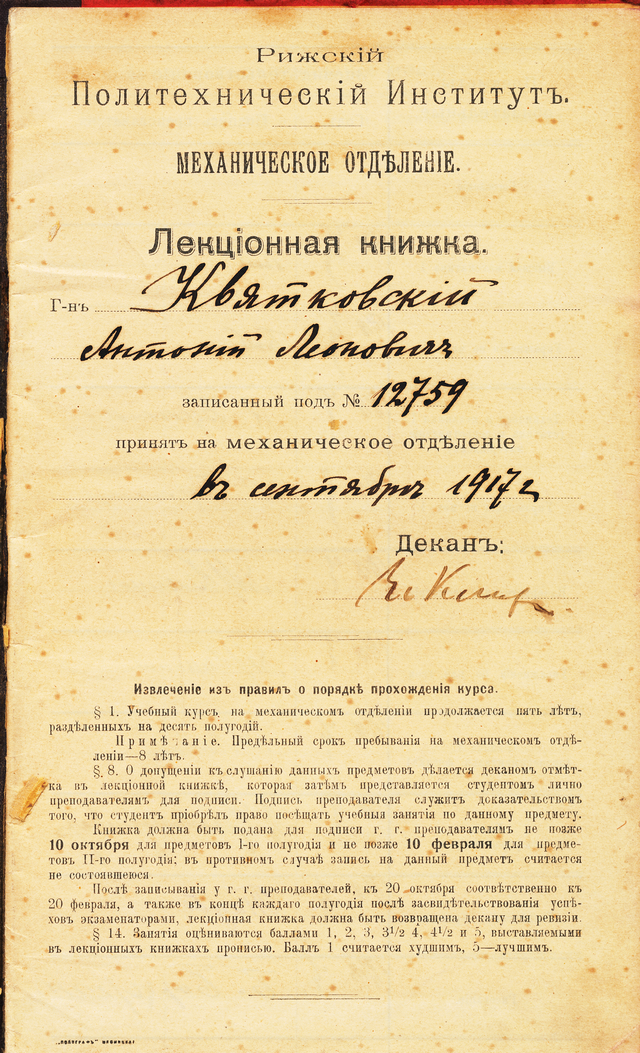 Рижскій
Политехническій Институтъ.
МЕХАНИЧЕСКОЕ ОТДѢЛЕНІЕ.
Лекціонная книжка.
Г-нъ Квятковскій
Антоній Леоновичъ
записанный подъ № 12759
принятъ на механическое отдѣленіе
въ сентябрѣ 1917 г
Деканъ:
Извлеченіе изъ правил о порядкѣ прохожденія курса.
§ 1. Учебный курсъ на механическом отдѣленіи продолжается пять лѣт,
раздѣленных на десять полугодій.
Примѣчаніе. Предѣльный срок пребыванія на механическом отдѣ-
леніи—8 лѣт.
§ 8. О допущеніи къ слушанію данных предметов дѣлается деканом отмѣт-
ка въ лекціонной книжкѣ, которая затѣм представляется студентом лично
преподавателям для подписи. Подпись преподавателя служит доказательством
того, что студент пріобрѣл право посѣщать учебныя занятія по данному предмету.
Книжка должна быть подана для подписи г. г. преподавателям не позже
10 октября для предметов І-го полугодія и не позже 10 февраля для предме-
тов ІІ-го полугодія: въ противном случаѣ запись на данный предмет считается
не состоявшеюся.
Послѣ записыванія у г. г. преподавателей, к 20 октября соотвѣтственно къ
20 февраля, а также в концѣ каждаго полугодія послѣ засвидѣтельствованія успѣ-
хов экзаменаторами, лекціонная книжка должна быть возвращена декану для ревизіи.
§ 14. Занятія оцѣниваются баллами 1, 2, 3, 3½ 4, 4½ и 5, выставляемыми
въ лекціонных книжках прописью. Баллъ 1 считается худшим, 5—лучшим.